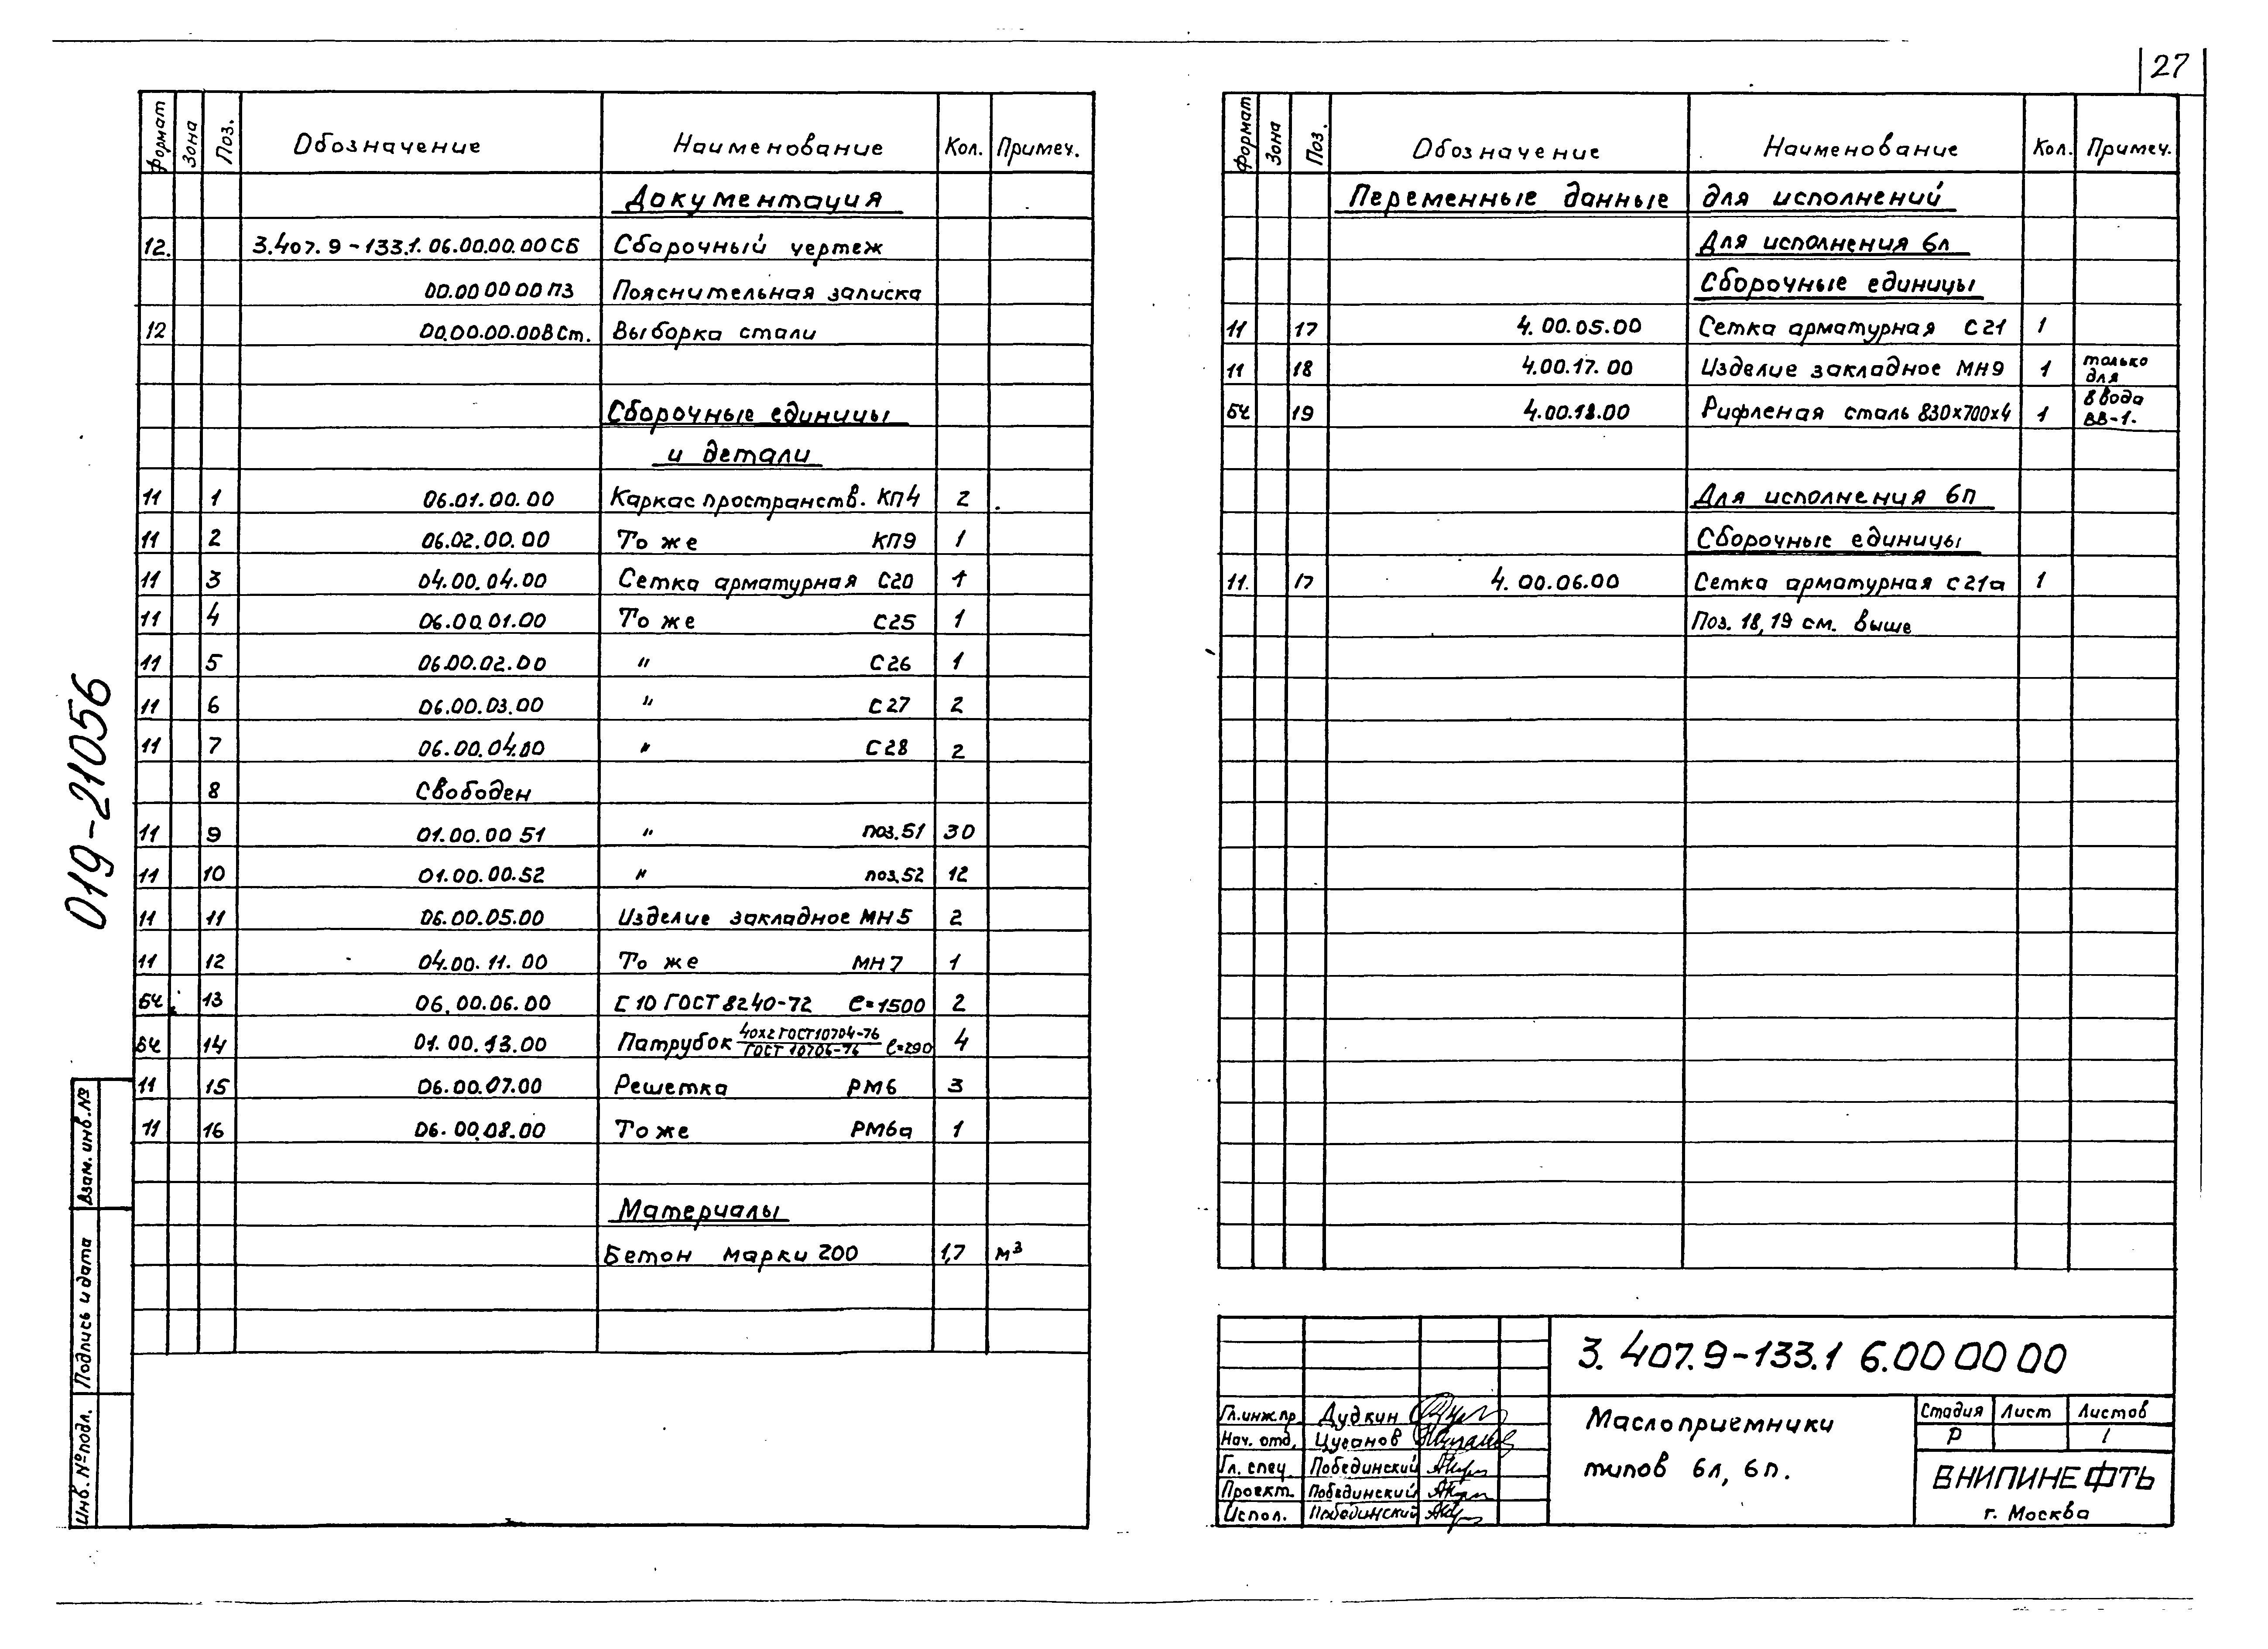 27
Формат Зона Поз. Обозначение Наименование Кол. Примеч.
Документация
12. 3.407.9-133.1.06.00.00.00 СБ Сборочный чертеж
00.00 00 00 ПЗ Пояснительная записка
12 00.00.00.00 В Ст. Выборка стали
Сборочные единицы
и детали
11 1 06.01.00.00 Каркас пространств. КП4 2
11 2 06.02.00.00 То же КП9 1
11 3 04.00.04.00 Сетка арматурная С20 1
11 4 06.00.01.00 То же С25 1
11 5 06.00.02.00 " С26 1
11 6 06.00.03.00 " С27 2
11 7 06.00.04.00 " С28 2
8 Свободен
11 9 01.00.00 51 " поз.51 30
11 10 01.00.00.52 " поз.52 12
11 11 06.00.05.00 Изделие закладное МН5 2
11 12 04.00.11.00 То же МН7 1
БЧ 13 06.00.06.00 [ 10 ГОСТ 8240-72 ℓ=1500 2
БЧ 14 01.00.13.00 Патрубок 40х2 ГОСТ10704-76 / ГОСТ 10706-76 ℓ=290 4
11 15 06.00.07.00 Решетка РМ6 3
11 16 06.00.08.00 То же РМ6а 1
Материалы
Бетон марки 200 1,7 м³
019-21056
Взам. инв. №
Подпись и дата
Инв. № подл.
Формат Зона Поз. Обозначение Наименование Кол. Примеч.
Переменные данные для исполнений
Для исполнения 6л
Сборочные единицы
11 17 4.00.05.00 Сетка арматурная С21 1
11 18 4.00.17.00 Изделие закладное МН9 1 только для
БЧ 19 4.00.18.00 Рифленая сталь 830х700х4 1 ввода ВВ-1.
Для исполнения 6п
Сборочные единицы
11. 17 4.00.06.00 Сетка арматурная С21а 1
Поз. 18,19 см. выше
3.407.9-133.1 6.00 00 00
Гл.инж.пр. Дудкин
Нач. отд. Цусанов
Гл. спец. Побединский
Проект. Побединский
Испол. Побединский
Маслоприемники
типов 6л, 6п.
Стадия Лист Листов
Р 1
ВНИПИНЕФТЬ
г. Москва